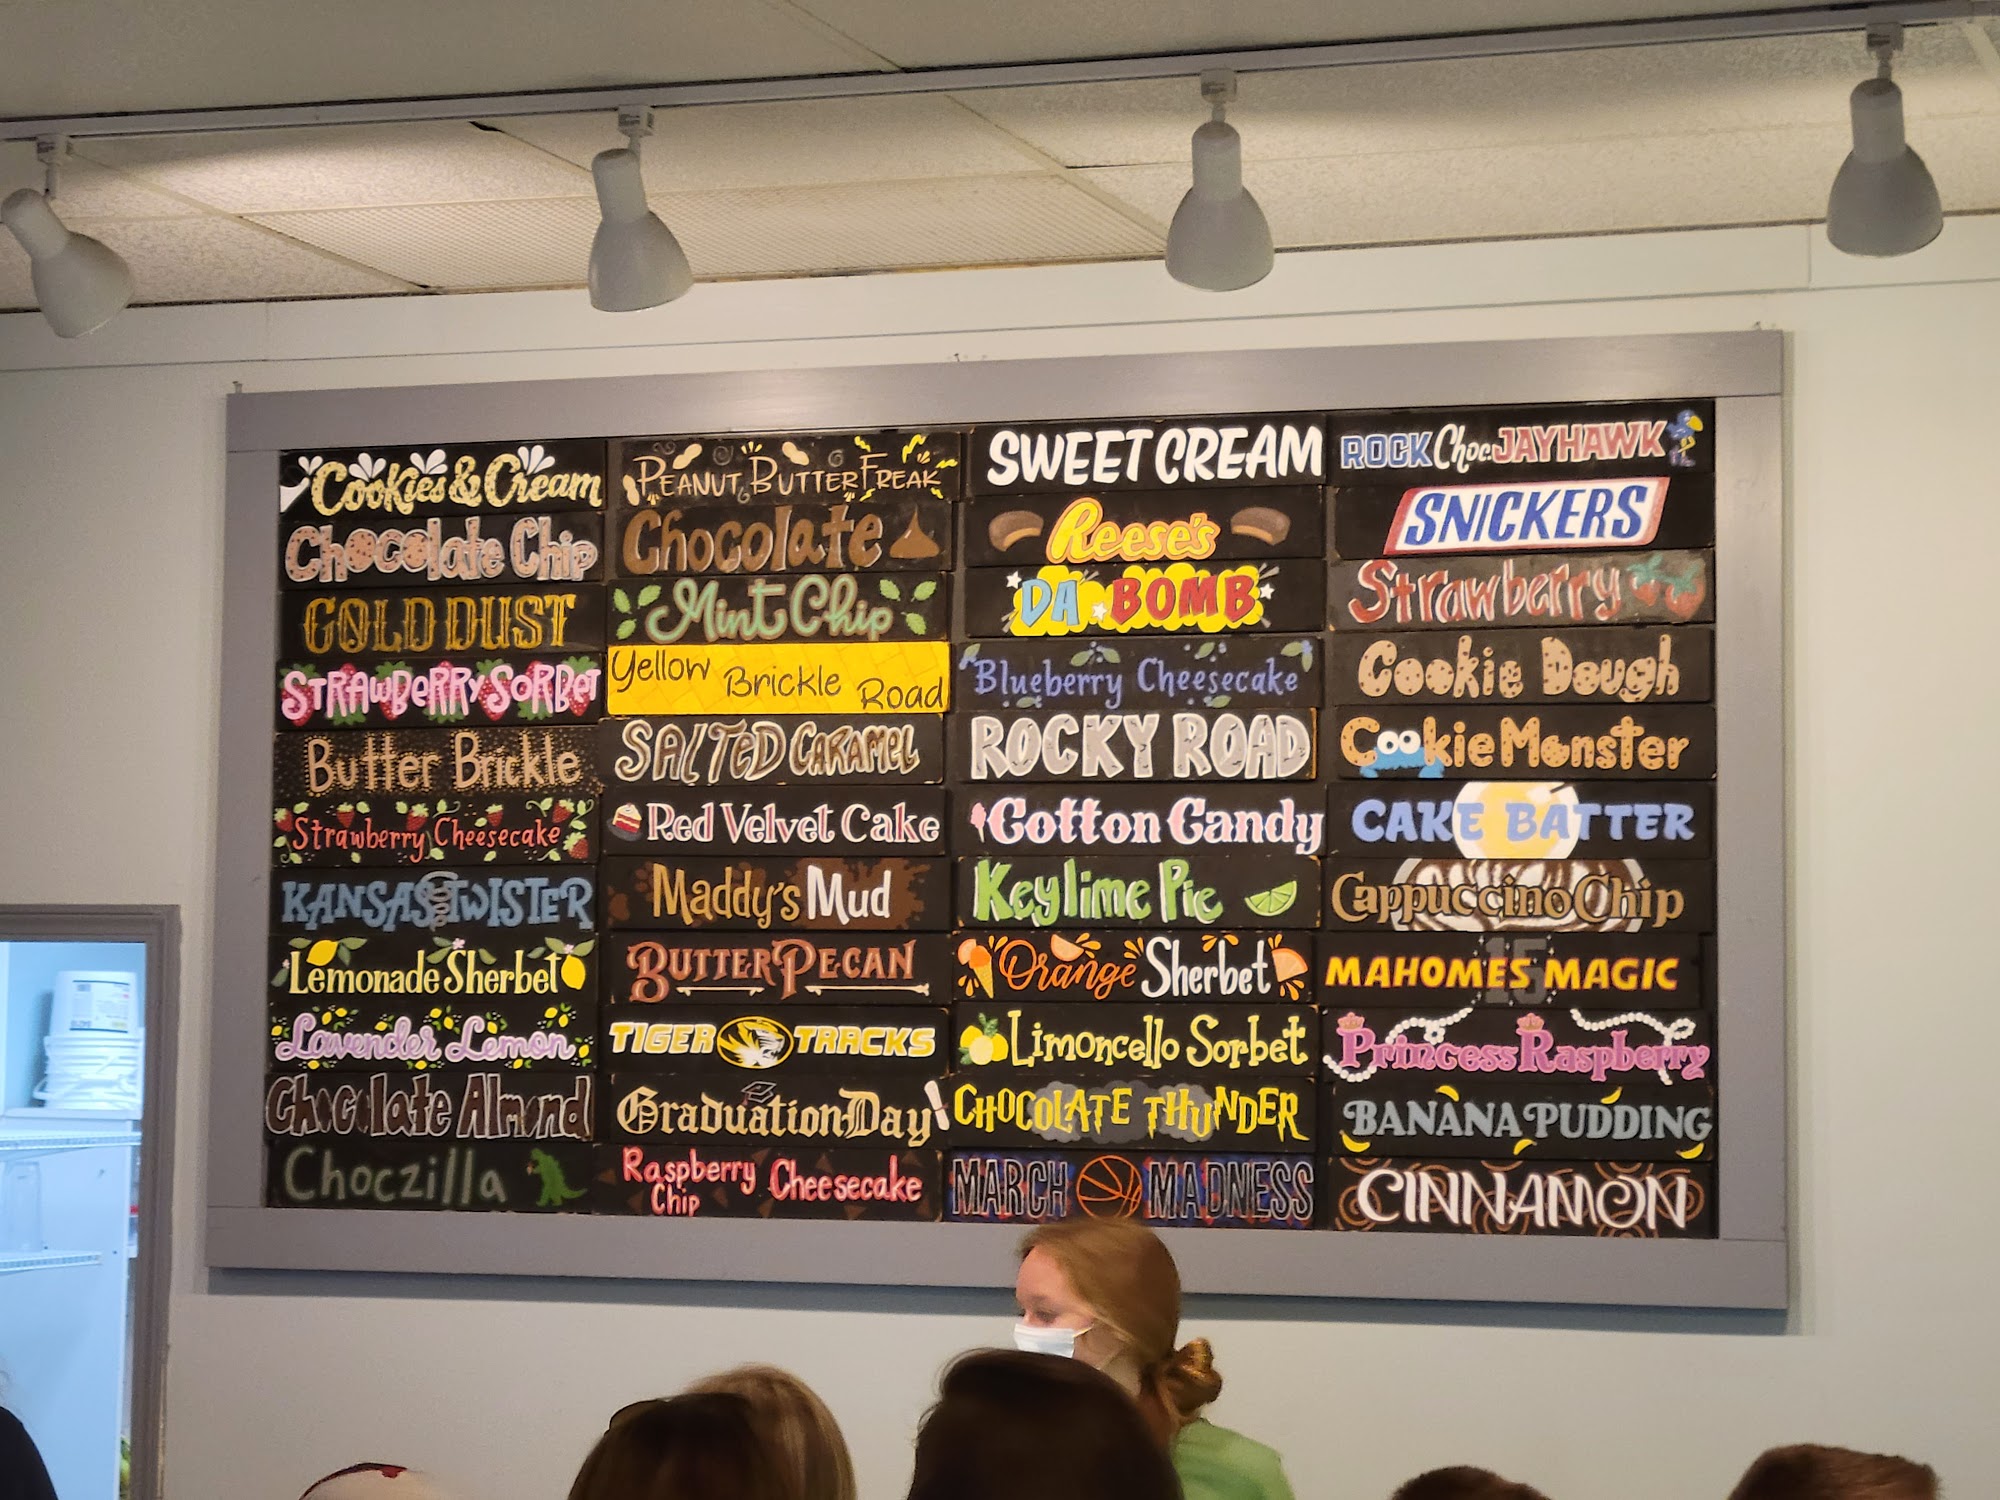 Cookies & Cream
Chocolate Chip
GOLD DUST
STRAWBERRY SORBET
Butter Brickle
Strawberry Cheesecake
KANSAS TWISTER
Lemonade Sherbet
Lavender Lemon
Chocolate Almond
Choczilla
PEANUT BUTTER FREAK
Chocolate
Mint Chip
Yellow Brickle Road
SALTED CARAMEL
Red Velvet Cake
Maddy's Mud
BUTTER PECAN
TIGER TRACKS
Graduation Day
Raspberry Chip Cheesecake
SWEET CREAM
Reese's
DA BOMB
Blueberry Cheesecake
ROCKY ROAD
Cotton Candy
Keylime Pie
Orange Sherbet
Limoncello Sorbet
CHOCOLATE THUNDER
MARCH MADNESS
ROCK Choc. JAYHAWK
SNICKERS
Strawberry
Cookie Dough
Cookie Monster
CAKE BATTER
Cappuccino Chip
15
MAHOMES MAGIC
Princess Raspberry
BANANA PUDDING
CINNAMON